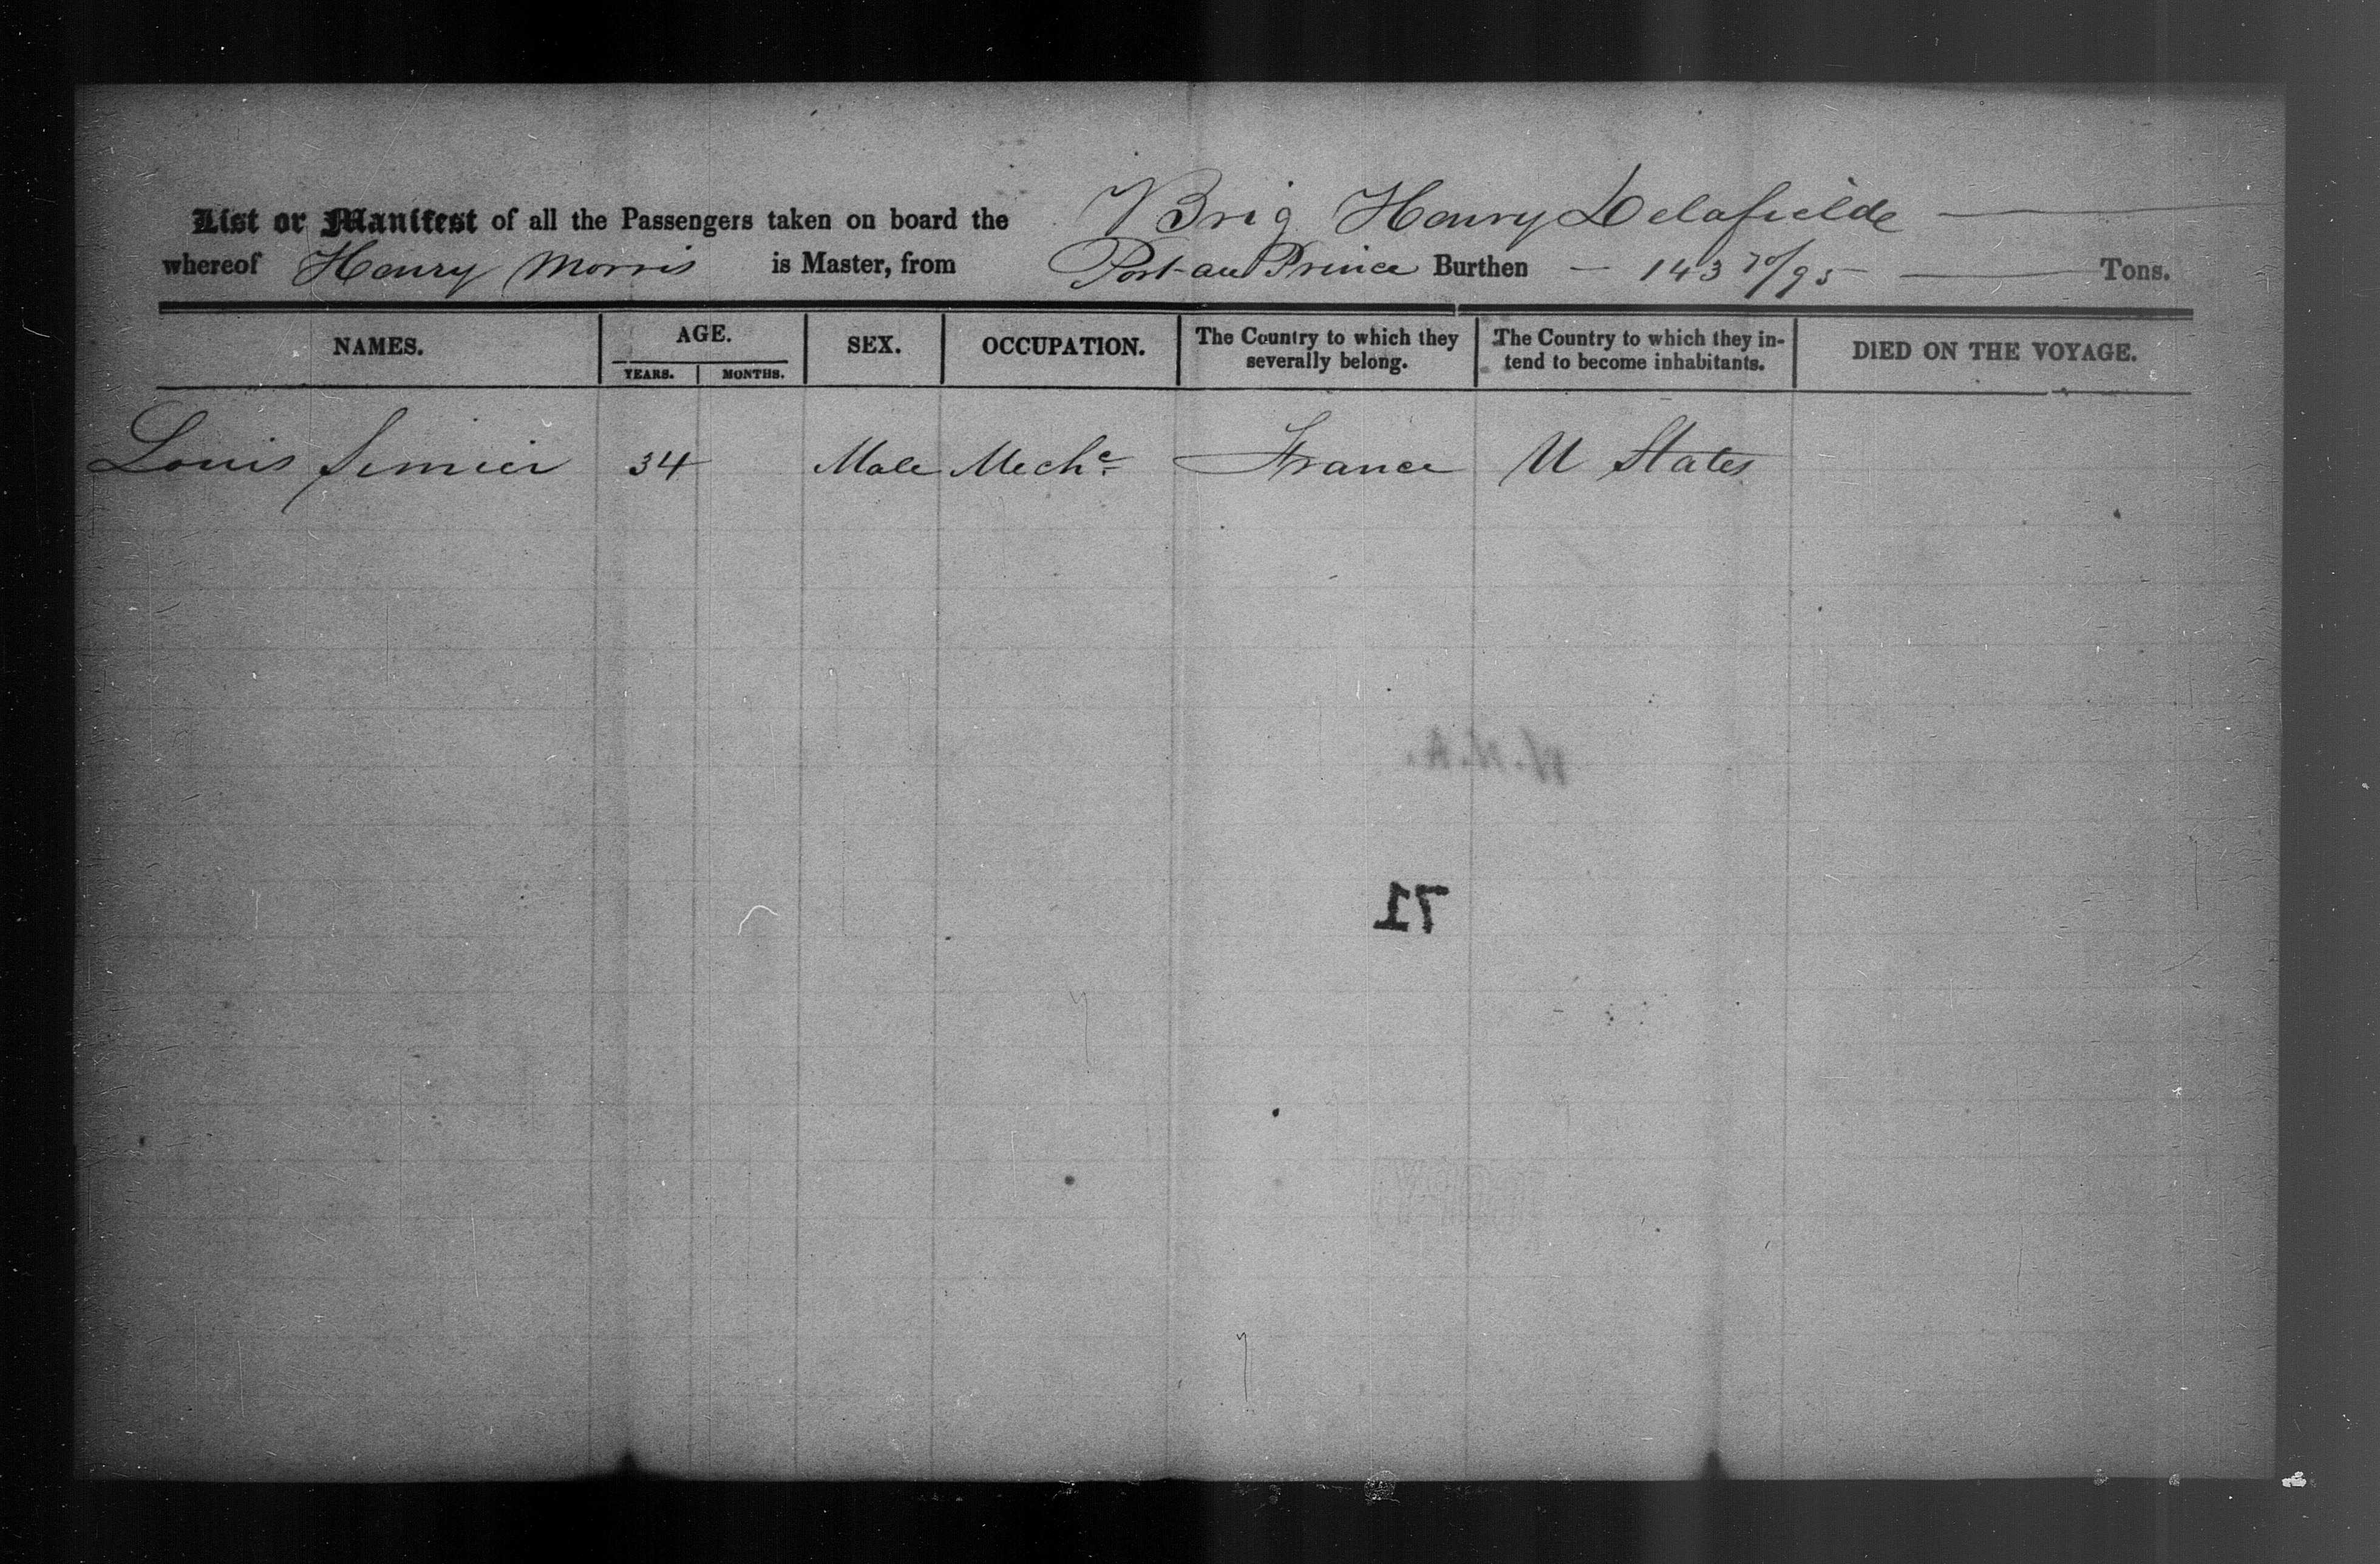 List or Manifest of all the Passengers taken on board the Brig Henry Delafielde
whereof Henry Morris is Master, from Port-au Prince Burthen — 143 70/95 — Tons.
NAMES. AGE. SEX. OCCUPATION. The Country to which they severally belong. The Country to which they in-tend to become inhabitants. DIED ON THE VOYAGE.
YEARS. MONTHS.
Louis Simier 34 Male Mechc France U States
71